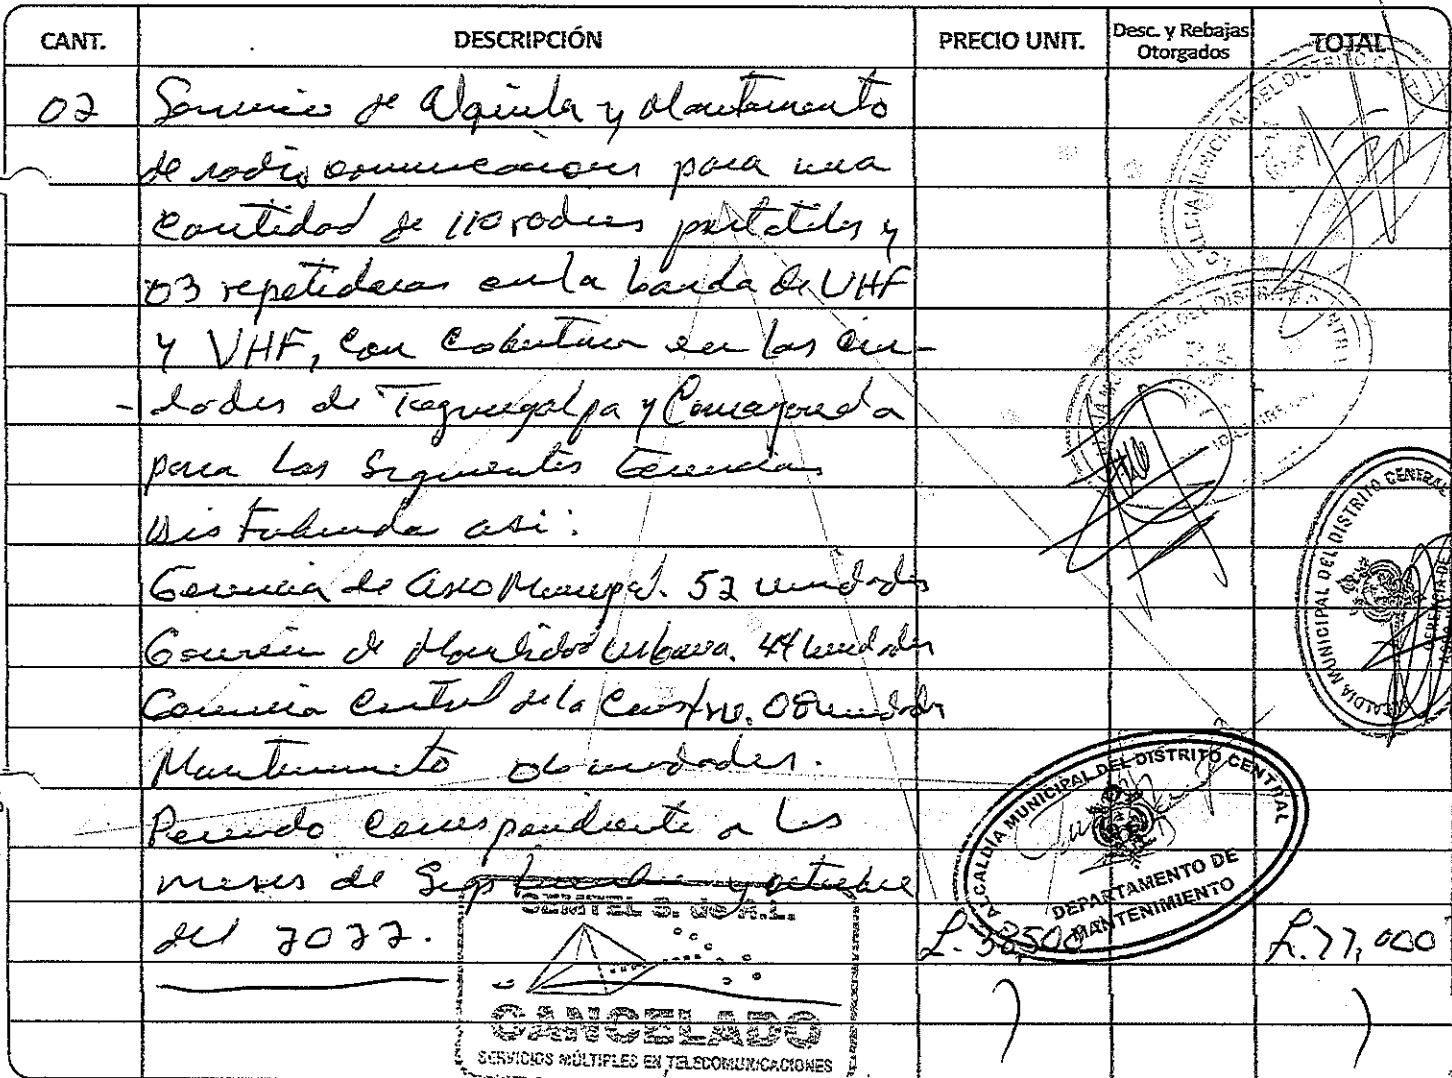 CANT. DESCRIPCIÓN PRECIO UNIT. Desc. y Rebajas Otorgados TOTAL
02 Servicio de Alquiler y Mantenimiento
de radio comunicaciones para una
cantidad de 110 radios portatiles y
03 repetidoras en la banda de UHF
y VHF, con cobertura en las ciu-
-dades de Tegucigalpa y Comayaguela
para las siguientes Gerencias
Distribuida asi:
Gerencia de Aseo Municipal. 52 unidades
Gerencia de Movilidad Urbana. 44 unidades
Gerencia Central de la 08 unidades
Mantenimiento unidades.
Periodo correspondiente a los
meses de Septiembre y octubre
del 2022. L. 38,500 L. 77,000
SEMTEL S. de R.L.
CANCELADO
SERVICIOS MÚLTIPLES EN TELECOMUNICACIONES
ALCALDIA MUNICIPAL DEL DISTRITO CENTRAL
DEPARTAMENTO DE
MANTENIMIENTO
ALCALDIA MUNICIPAL DEL DISTRITO CENTRAL
GERENCIA DE